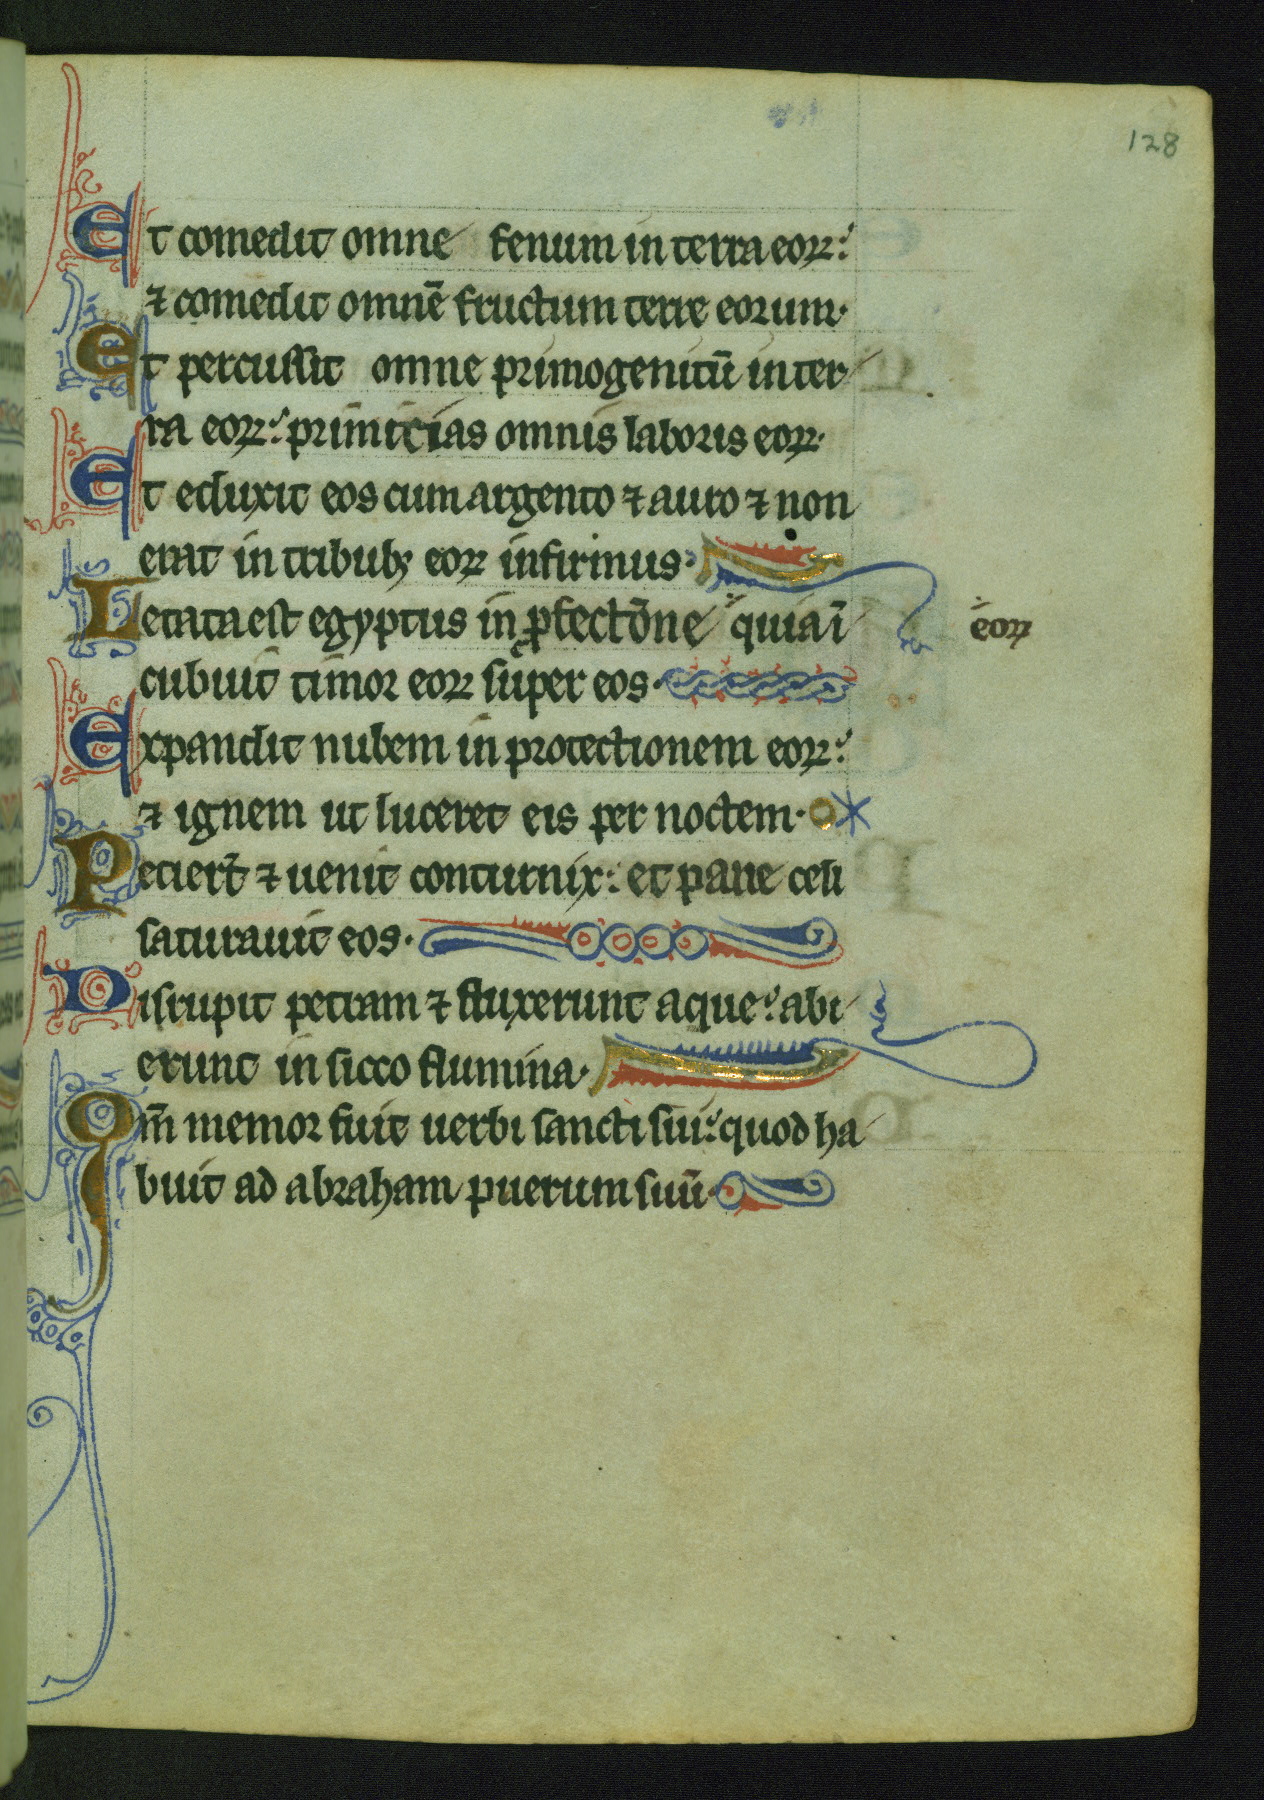 128
Et comedit omne fenum in terra eoꝝ:
⁊ comedit omnē fructum terre eorum·
Et percussit omne primogenitū in ter
ra eoꝝ: primicias omnis laboris eoꝝ·
Et eduxit eos cum argento ⁊ auro ⁊ non
erat in tribubꝫ eoꝝ infirmus·
Letata est egyptus in ꝓfectōne quia ī
eoꝝ
cubuit timor eoꝝ super eos·
Expandit nubem in protectionem eoꝝ:
⁊ ignem ut luceret eis per noctem·
Petiert̄ ⁊ uenit conturnix: et pane celi
saturauit eos·
Disrupit petram ⁊ fluxerunt aque: abi
erunt in sicco flumina·
Qm̄ memor fuit uerbi sancti sui: quod ha
buit ad abraham puerum suū·